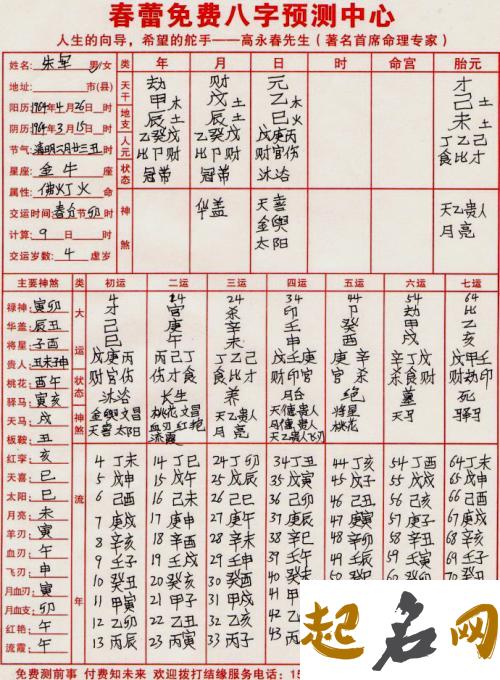 春蕾免费八字预测中心
人生的向导，希望的舵手——高永春先生（著名首席命理专家）
姓名: 朱军 男/女 类 年 月 日 时 命宫 胎元
地址: 市(县) 天干 劫 财 元 才
甲木 戊土 乙木 己土
阳历: 1964年4月26日 时 地支 辰土 辰土 巳火 未土
阴历: 1964年3月15日 时 人元 乙癸戊 乙癸戊 戊庚丙 丁乙己
节气: 清明六月廿三丑时 比卩财 比卩财 财官伤 食比才
星座: 金牛 状态 冠带 冠带 沐浴
属性: 佛灯火 命
交运时间: 春分节卯时 神煞 华盖 天喜 天乙贵人
计算: 9 日 时 金舆 月亮
交运岁数: 4 虚岁 太阳
主要神煞 初运 二运 三运 四运 五运 六运 七运
大运 4 14 24 34 44 54 64
才 官 杀 印 卩 劫 比
己 庚 辛 壬 癸 甲 乙
巳 午 未 申 酉 戌 亥
戊庚丙 丙己丁 丁乙己 戊庚壬 庚辛 辛丁戊 戊甲壬
财官伤 伤才食 食比才 财官印 官杀 杀食财 财劫印
状态 沐浴 长生 养 绝 墓 死
神煞 金舆文昌 桃花文昌 天乙贵人 将星 天马 驿马
天喜太阳 血刃红艳 月亮 桃花
流霞
禄神: 寅卯
华盖: 辰丑
将星: 子酉
贵人: 丑未申
桃花: 酉午
驿马: 寅亥
天马: 戌
板鞍: 丑
红孪: 亥
天喜: 巳
太阳: 巳
月亮: 未
羊刃: 寅
血刃: 午
飞刃: 申
月血刃: 寅
月血支: 卯
红艳: 午
流霞: 午
流年
4丁未 14丁巳 24丁卯 34丁丑 44丁亥 54丁酉 64丁未
5戊申 15戊午 25戊辰 35戊寅 45戊子 55戊戌 65戊申
6己酉 16己未 26己巳 36己卯 46己丑 56己亥 66己酉
7庚戌 17庚申 27庚午 37庚辰 47庚寅 57庚子 67庚戌
8辛亥 18辛酉 28辛未 38辛巳 48辛卯 58辛丑 68辛亥
9壬子 19壬戌 29壬申 39壬午 49壬辰 59壬寅
10癸丑 20癸亥 30癸酉 40癸未 50癸巳
11甲寅 21甲子 31甲戌 41甲申
12乙卯 22乙丑 32乙亥 42乙酉
13丙辰 23丙寅 33丙子 43
起名网
免费测前事 付费知未来 欢迎拨打结缘服务电话：15